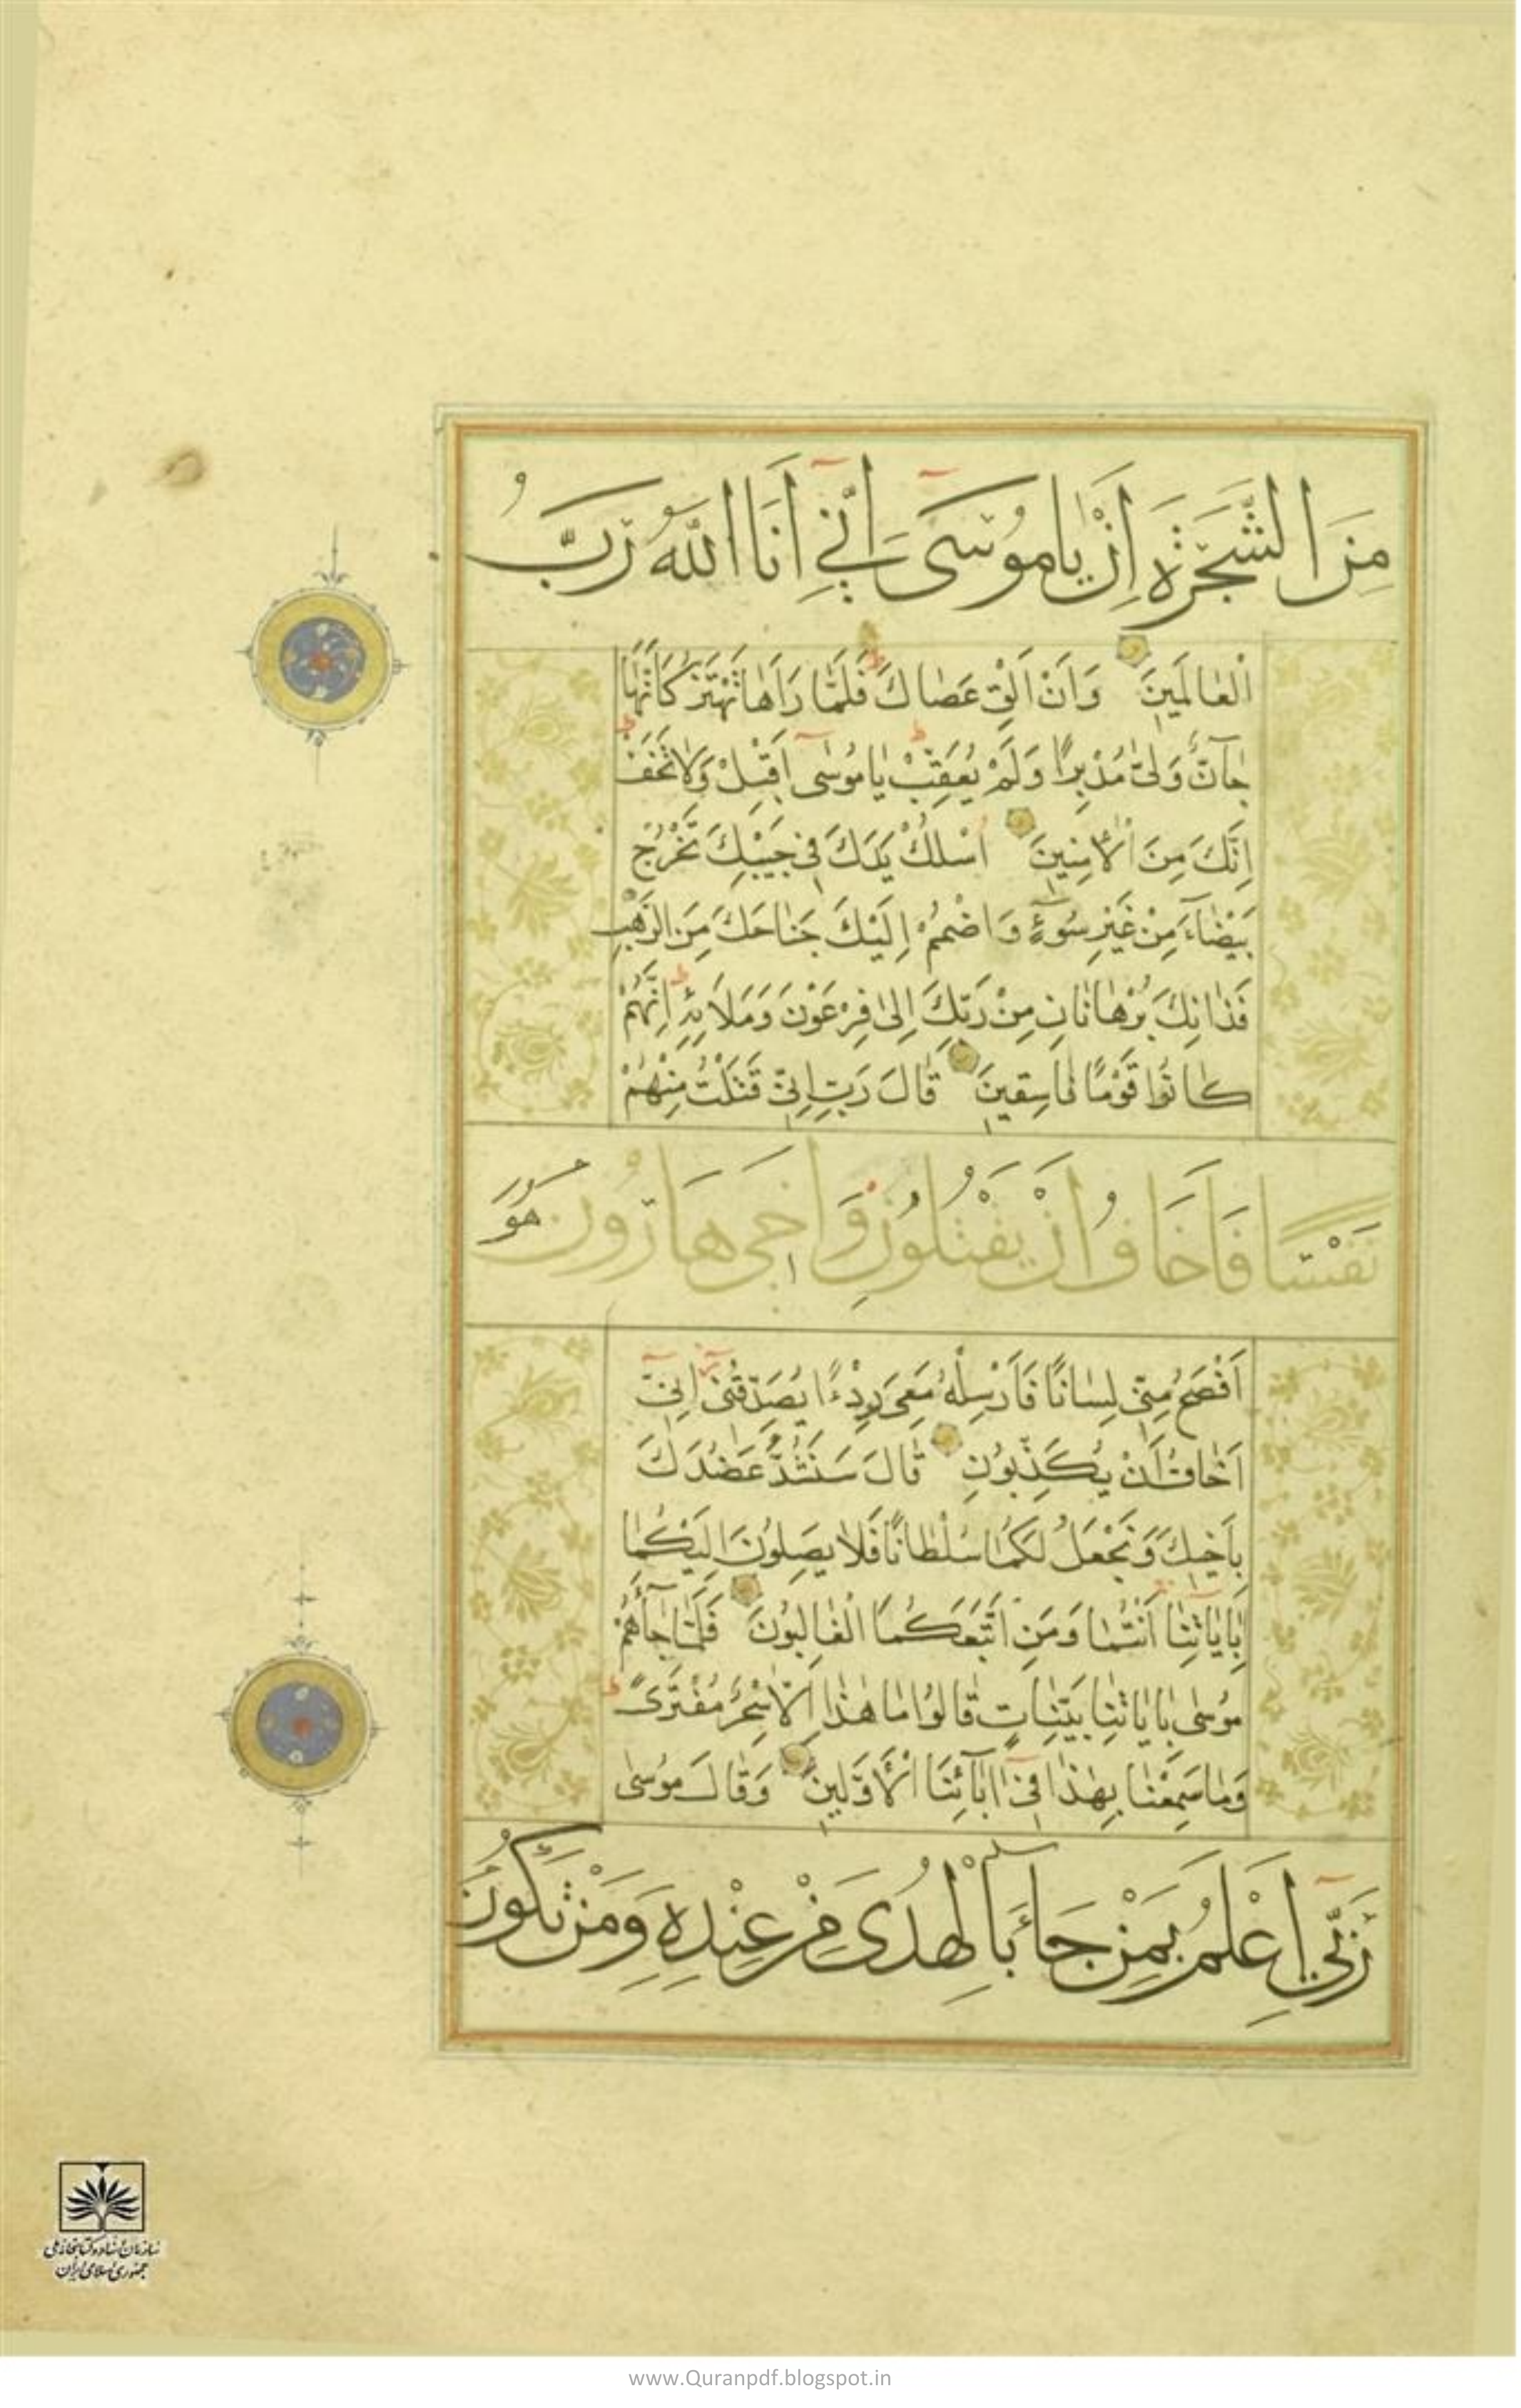 مِنَ الشَّجَرَةِ اَنْ يَا مُوسَى اِنِّي اَنَا اللّٰهُ رَبُّ
الْعَالَمِينَ وَاَنْ اَلْقِ عَصَاكَ فَلَمَّا رَاٰهَا تَهْتَزُّ كَاَنَّهَا
جَآنٌّ وَلّٰى مُدْبِرًا وَلَمْ يُعَقِّبْ يَا مُوسٰى اَقْبِلْ وَلَا تَخَفْ
اِنَّكَ مِنَ الْاٰمِنِينَ اُسْلُكْ يَدَكَ فِي جَيْبِكَ تَخْرُجْ
بَيْضَآءَ مِنْ غَيْرِ سُوٓءٍ وَاضْمُمْ اِلَيْكَ جَنَاحَكَ مِنَ الرَّهْبِ
فَذَانِكَ بُرْهَانَانِ مِنْ رَبِّكَ اِلٰى فِرْعَوْنَ وَمَلَائِهِ اِنَّهُمْ
كَانُوا قَوْمًا فَاسِقِينَ قَالَ رَبِّ اِنِّي قَتَلْتُ مِنْهُمْ
نَفْسًا فَاَخَافُ اَنْ يَقْتُلُونِ وَاَخِي هَارُونُ هُوَ
اَفْصَحُ مِنِّي لِسَانًا فَاَرْسِلْهُ مَعِيَ رِدْءًا يُصَدِّقُنِي اِنِّي
اَخَافُ اَنْ يُكَذِّبُونِ قَالَ سَنَشُدُّ عَضُدَكَ
بِاَخِيكَ وَنَجْعَلُ لَكُمَا سُلْطَانًا فَلَا يَصِلُونَ اِلَيْكُمَا
بِاٰيَاتِنَا اَنْتُمَا وَمَنِ اتَّبَعَكُمَا الْغَالِبُونَ فَلَمَّا جَآءَهُمْ
مُوسٰى بِاٰيَاتِنَا بَيِّنَاتٍ قَالُوا مَا هٰذَا اِلَّا سِحْرٌ مُفْتَرًى
وَمَا سَمِعْنَا بِهٰذَا فِي اٰبَآئِنَا الْاَوَّلِينَ وَقَالَ مُوسٰى
رَبِّي اَعْلَمُ بِمَنْ جَآءَ بِالْهُدَى مِنْ عِنْدِهِ وَمَنْ تَكُونُ
سازمان اسناد و کتابخانه ملی
جمهوری اسلامی ایران
www.Quranpdf.blogspot.in